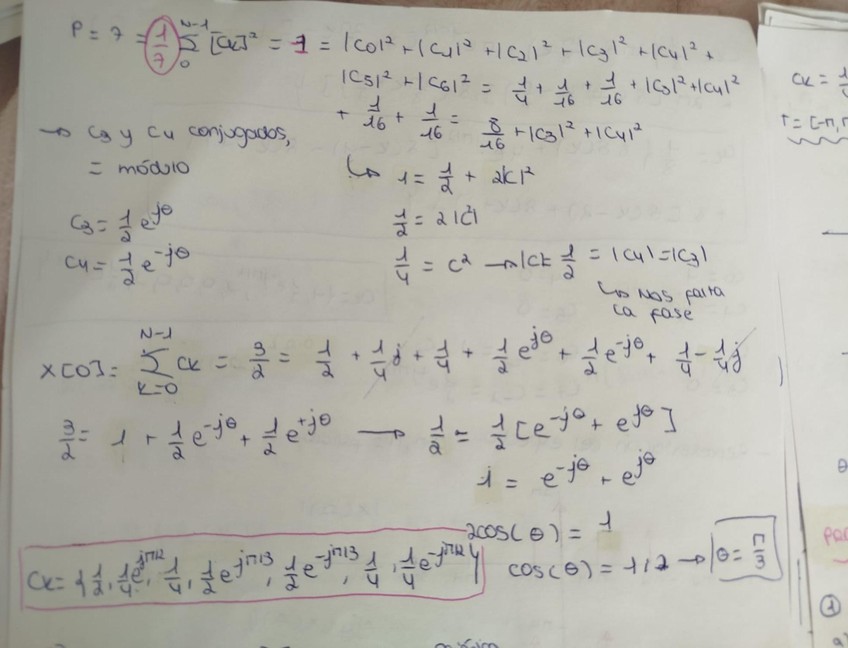 P = 7 = 1/7 Σ_0^{N-1} |Ck|² = 1 = |C0|² + |C1|² + |C2|² + |C3|² + |C4|² +
|C5|² + |C6|² = 1/4 + 1/16 + 1/16 + |C3|² + |C4|²
+ 1/16 + 1/16 = 8/16 + |C3|² + |C4|²
→ C3 y C4 conjugados,
= módulo
↳ 1 = 1/2 + 2|C|²
C3 = 1/2 e^{jθ}
1/2 = 2|C²|
C4 = 1/2 e^{-jθ}
1/4 = C² → |C| = 1/2 = |C4| = |C3|
↳ Nos falta
la fase
X[0] = Σ_{k=0}^{N-1} Ck = 3/2 = 1/2 + 1/4 j + 1/4 + 1/2 e^{jθ} + 1/2 e^{-jθ} + 1/4 - 1/4 j
3/2 = 1 + 1/2 e^{-jθ} + 1/2 e^{+jθ} → 1/2 = 1/2 [e^{-jθ} + e^{jθ}]
1 = e^{-jθ} + e^{jθ}
2cos(θ) = 1
cos(θ) = 1/2 → θ = π/3
Ck = {1/2, 1/4 e^{jπ/2}, 1/4, 1/2 e^{jπ/3}, 1/2 e^{-jπ/3}, 1/4, 1/4 e^{-jπ/2}}
Ck = 1
θ
①